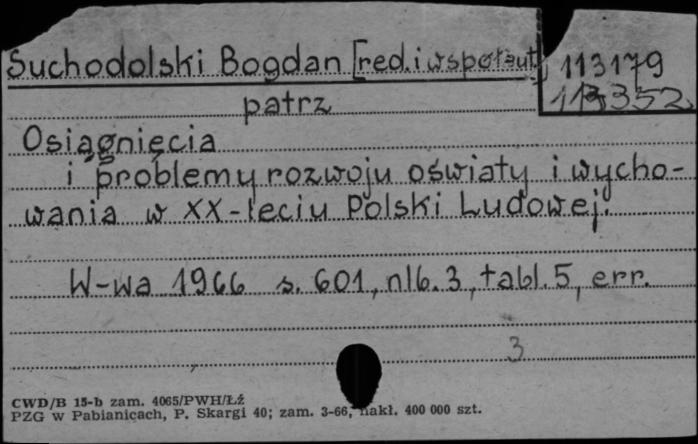 Suchodolski Bogdan [red. i współaut.
113179
113352
patrz
Osiągnięcia
i problemy rozwoju oświaty i wycho-
wania w XX-leciu Polski Ludowej.
W-wa 1966 s. 601, nlb. 3, tabl. 5, err.
3
CWD/B 15-b zam. 4065/PWH/Łź
PZG w Pabianicach, P. Skargi 40; zam. 3-66, nakł. 400 000 szt.